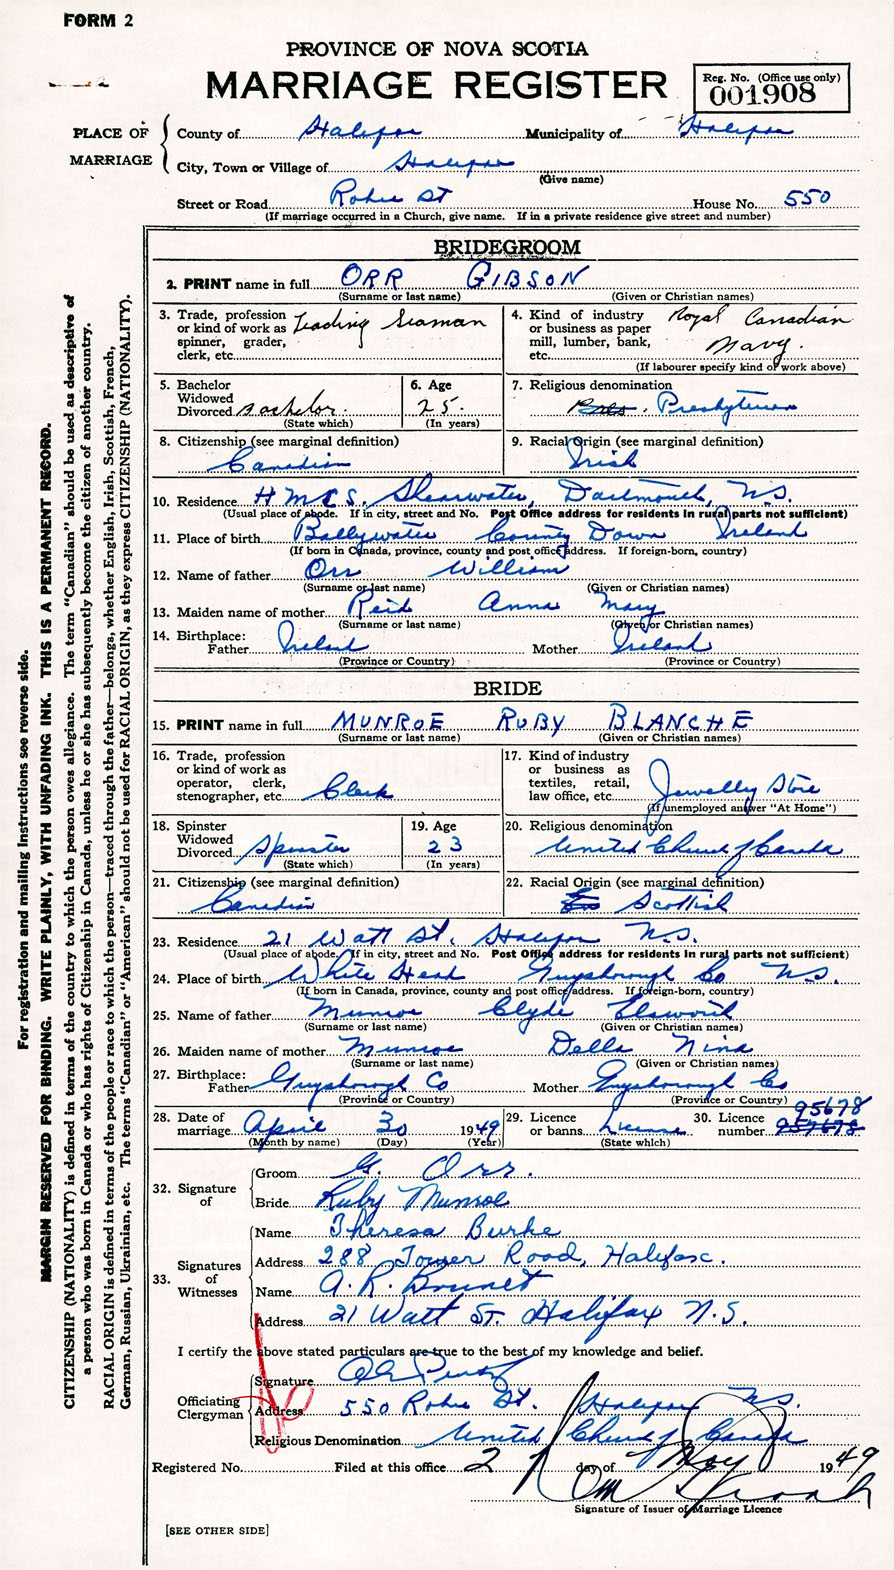 FORM 2
PROVINCE OF NOVA SCOTIA
MARRIAGE REGISTER
Reg. No. (Office use only)
001908
PLACE OF MARRIAGE
County of Halifax Municipality of Halifax
City, Town or Village of Halifax
(Give name)
Street or Road Robie St House No. 550
(If marriage occurred in a Church, give name. If in a private residence give street and number)
BRIDEGROOM
2. PRINT name in full ORR GIBSON
(Surname or last name) (Given or Christian names)
3. Trade, profession or kind of work as spinner, grader, clerk, etc. Leading Seaman
4. Kind of industry or business as paper mill, lumber, bank, etc. Royal Canadian Navy.
(If labourer specify kind of work above)
5. Bachelor Widowed Divorced Bachelor.
(State which)
6. Age 25.
(In years)
7. Religious denomination Presbyterian
8. Citizenship (see marginal definition) Canadian
9. Racial Origin (see marginal definition) Irish
10. Residence HMCS. Shearwater, Dartmouth, N.S.
(Usual place of abode. If in city, street and No. Post Office address for residents in rural parts not sufficient)
11. Place of birth Ballywater County Down Ireland
(If born in Canada, province, county and post office address. If foreign-born, country)
12. Name of father Orr William
(Surname or last name) (Given or Christian names)
13. Maiden name of mother Reid Anna Mary
(Surname or last name) (Given or Christian names)
14. Birthplace: Father Ireland Mother Ireland
(Province or Country) (Province or Country)
BRIDE
15. PRINT name in full MUNROE RUBY BLANCHE
(Surname or last name) (Given or Christian names)
16. Trade, profession or kind of work as operator, clerk, stenographer, etc. Clerk
17. Kind of industry or business as textiles, retail, law office, etc. Jewelly Store
(If unemployed answer "At Home")
18. Spinster Widowed Divorced Spinster
(State which)
19. Age 23
(In years)
20. Religious denomination United Church of Canada
21. Citizenship (see marginal definition) Canadian
22. Racial Origin (see marginal definition) Scottish
23. Residence 21 Watt St. Halifax N.S.
(Usual place of abode. If in city, street and No. Post Office address for residents in rural parts not sufficient)
24. Place of birth White Head Guysborough Co N.S.
(If born in Canada, province, county and post office address. If foreign-born, country)
25. Name of father Munroe Clyde Elsworth
(Surname or last name) (Given or Christian names)
26. Maiden name of mother Munroe Della Nina
(Surname or last name) (Given or Christian names)
27. Birthplace: Father Guysborough Co Mother Guysborough Co
(Province or Country) (Province or Country)
28. Date of marriage April 30 1949
(Month by name) (Day) (Year)
29. Licence or banns License
(State which)
30. Licence number 95678 957678
32. Signature of
Groom G. Orr.
Bride Ruby Munroe
33. Signatures of Witnesses
Name Theresa Burke
Address 288 Tower Road, Halifax.
Name A. R. Brunet
Address 21 Watt St. Halifax N.S.
I certify the above stated particulars are true to the best of my knowledge and belief.
Officiating Clergyman
Signature
Address 550 Robie St. Halifax N.S.
Religious Denomination United Church of Canada
Registered No. Filed at this office 2 day of May 1949
Signature of Issuer of Marriage Licence
[SEE OTHER SIDE]
For registration and mailing instructions see reverse side.
MARGIN RESERVED FOR BINDING. WRITE PLAINLY, WITH UNFADING INK. THIS IS A PERMANENT RECORD.
CITIZENSHIP (NATIONALITY) is defined in terms of the country to which the person owes allegiance. The term "Canadian" should be used as descriptive of
a person who was born in Canada or who has rights of Citizenship in Canada, unless he or she has subsequently become the citizen of another country.
RACIAL ORIGIN is defined in terms of the people or race to which the person—traced through the father—belongs, whether English, Irish, Scottish, French,
German, Russian, Ukrainian, etc. The terms "Canadian" or "American" should not be used for RACIAL ORIGIN, as they express CITIZENSHIP (NATIONALITY).